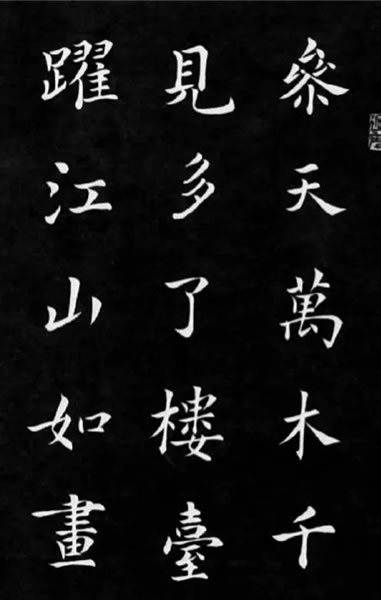 參天萬木千
見多了樓臺
躍江山如畫